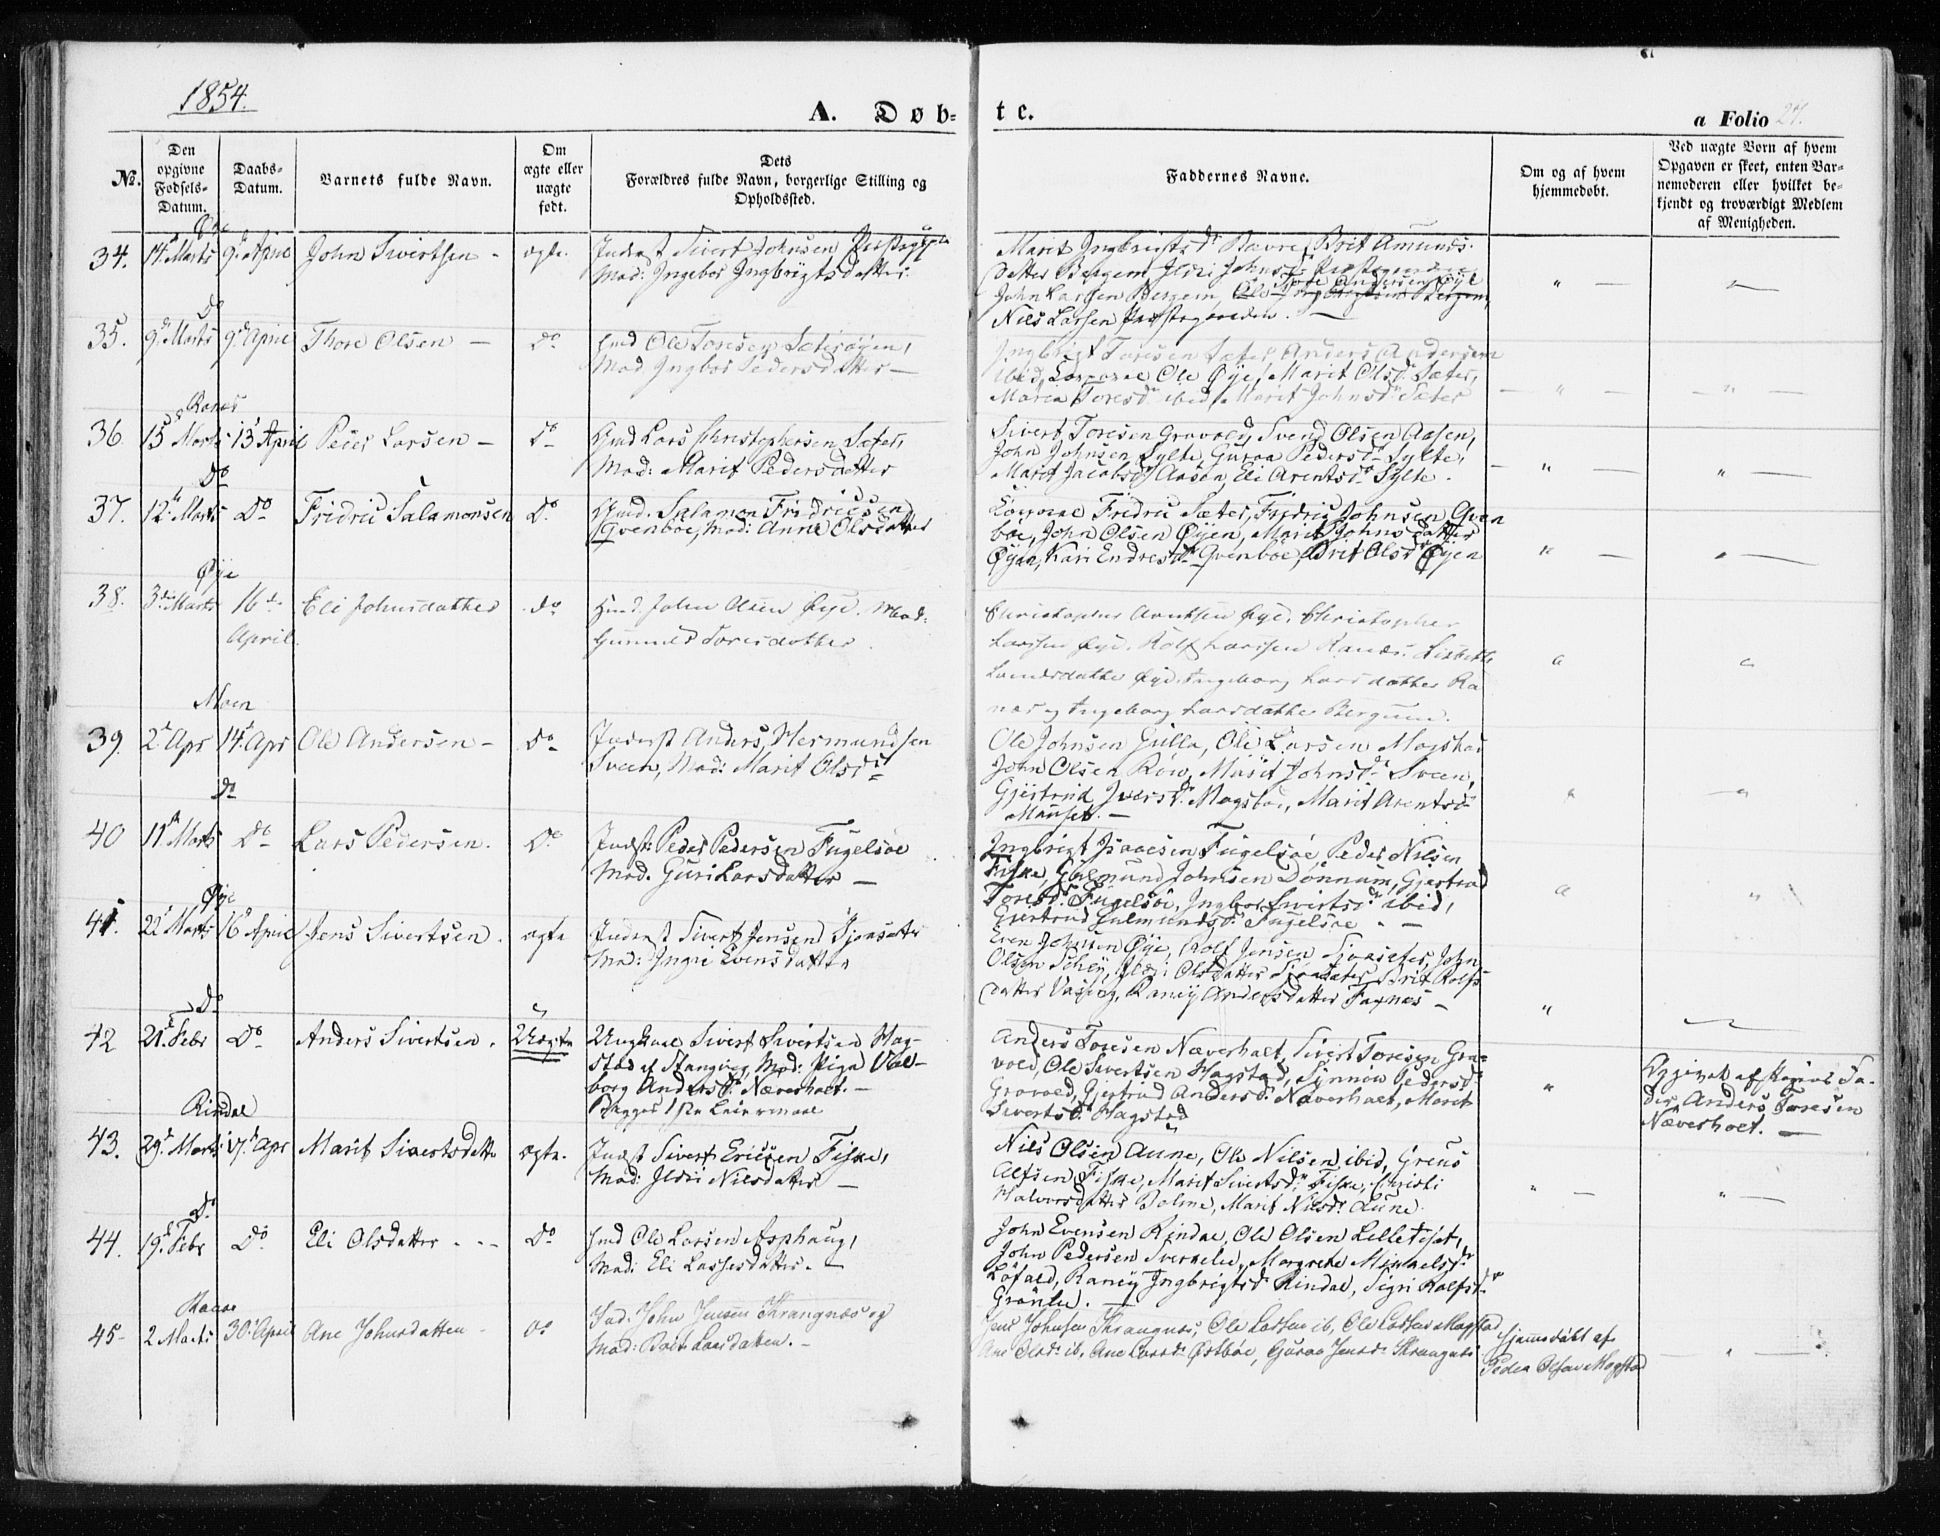 1854.
A. Døb-
te.
a Folio 27.
No.
Den
opgivne
Fødsels-
Datum.
Daabs-
Datum.
Barnets fulde Navn.
Om
ægte eller
uægte
født.
Dets
Forældres fulde Navn, borgerlige Stilling og
Opholdssted.
Faddernes Navne.
Om og af hvem
hjemmedøbt.
Ved uægte Børn af hvem
Opgaven er skeet, enten Bar-
nemoderen eller hvilket be-
kjendt og troværdigt Medlem
af Menigheden.
Øye
34. 14d Marts 9d April John Sivertsen - ægte. Inderst Sivert Johnsen
Mod: Ingebor Ingbrigtsdatter.
Marit Ingbrigtsdr Bævre, Brit Amunds-
datter Bergem, Ildri Johnsdr
Tore Andersen Øye
John Larsen Bergem,
Nils Larsen Præstegaarden. —
Do
35. 9d Marts 9d April Thore Olsen — Do Gmd Ole Toresen Sæterøyen,
Mod. Ingbor Pedersdatter —
Ingbrigt Toresen Sæter, Anders Andersen
ibid, Corporal Ole Øye, Marit Olsdr Sæter,
Maria Toresdr ibid, Marit Johnsdr Sæter
Ranes
36. 15d Marts 13d April Peder Larsen — Do Gmd Lars Christophersen Sæter,
Mod: Marit Pedersdatter
Sivert Toresen Gravvold, Svend Olsen Aasen,
John Johnsen Sylte, Guroe Pedersdr Sylte,
Marit Jacobsdr Aasen, Eli Arentsdr Sylte.
Do
37. 12d Marts Do Fridric Salamonsen Do Gmd. Salamon Fridricsen
Qvenboe, Mod: Anne Olsdatter
Corporal Fridric Sæter, Fridric Johnsen Qven
boe, John Olsen Øyen, Marit Johnsdatter
Øyen, Kari Endresdr Qvenboe, Brit Olsdr Øyen
Øye
38. 3die Marts 16de Eli Johnsdatter do Gmd. John Olsen Øye. Mod:
April. Gunnild Toresdatter.
Christopher Arntsen Øye, Christopher
Larssen Øye, Rolf Larssen Ranæs, Lisbeth
Larsdatter Øye, Ingeborg Larsdatter Ra-
næs og Ingeborg Larsdatter Bergum.
Moen
39. 2d Apr 14d Apr Ole Andersen — Do Inderst Anders Hermundsen
Sveen, Mod: Marit Olsdr
Ole Johnsen Gulla, Ole Larsen Mogstad
John Olsen Røv, Marit Johnsdr Sveen,
Gjertrud Iversdr Mogstad, Marit Arentsdr
Mauset. —
Do
40 11d Marts Do Lars Pedersen. Do Indst: Peder Pedersen Fugelsøe
Mod. Guri Larsdatter —
Ingbrigt Isacsen Fugelsøe, Peder Nilsen
Fiske, Gulmund Johnsen Dønnum, Gjertrud
Toresdr Fugelsøe, Ingbor Sivertsdr ibid,
Gjertrud Gulmundsdr Fugelsøe. —
Øye
41. 22d Marts 16d April Jens Sivertsen. ægte Inderst Sivert Jensen Sjøsæter
Mod: Ingri Evensdatter
Even Johnsen Øye, Rolf Jensen Sjøsæter, John
Olsen Schey, Ildri Olsdatter Sjøsæter, Brit Rolfs
datter Vaseg, Raney Andersdatter Fagnæs —
Do
42 21d Febr Do Anders Sivertsen. Uægte Ungkarl Sivert Sivertsen Hag-
stad af Stangvig, Mod: Pige Vol-
borg Andersdr Næverholt. —
Begges 1ste Leiermaal
Anders Toresen Næverholt, Sivert Toresen Gra-
vold, Ole Sivertsen Hagstad, Synnøv Pedersdr
Gravold, Gjertrud Andersdr Næverholt, Marit
Sivertsdr Hagstad
Opgivet af Pigens Fa-
der Anders Toresen
Næverholt. —
Rindal
43. 29d Marts 17d Apr Marit Sivertsdatter ægte. Indst Sivert Ericsen Fiske,
Mod: Ildri Nilsdatter —
Nils Olsen Aune, Ole Nilsen ibid, Greus
Alfsen Fiske, Marit Sivertsdr Fiske, Christi
Halvorsdatter Bolme, Marit Nilsdr Aune.
Do
44. 19d Febr Do Eli Olsdatter. Do Gmd Ole Larsen Asphaug,
Mod: Eli Lassesdatter. —
John Evensen Rindal, Ole Olsen Lilletiset,
John Pedersen Sverkelie, Margrete Mikkelsdr
Løfald, Raney Ingbrigtsdr Rindal, Sigri Rolfsdr
Grønlie. —
Ranæs
45. 2 Marts 30. April Ane Johnsdatter Do Ind. John Jensen Skrangnæs og
Mod: Brit Larsdatter. —
Jens Johnsen Skrangnæs, Ole Larsen ib, Ole Larsen Mogstad
Ane Olsdr ib, Ane Larsdr Østbøe, Guroe Jensdr Skrangnæs
Hjemmedøbt af
Peder Olsen Mogstad